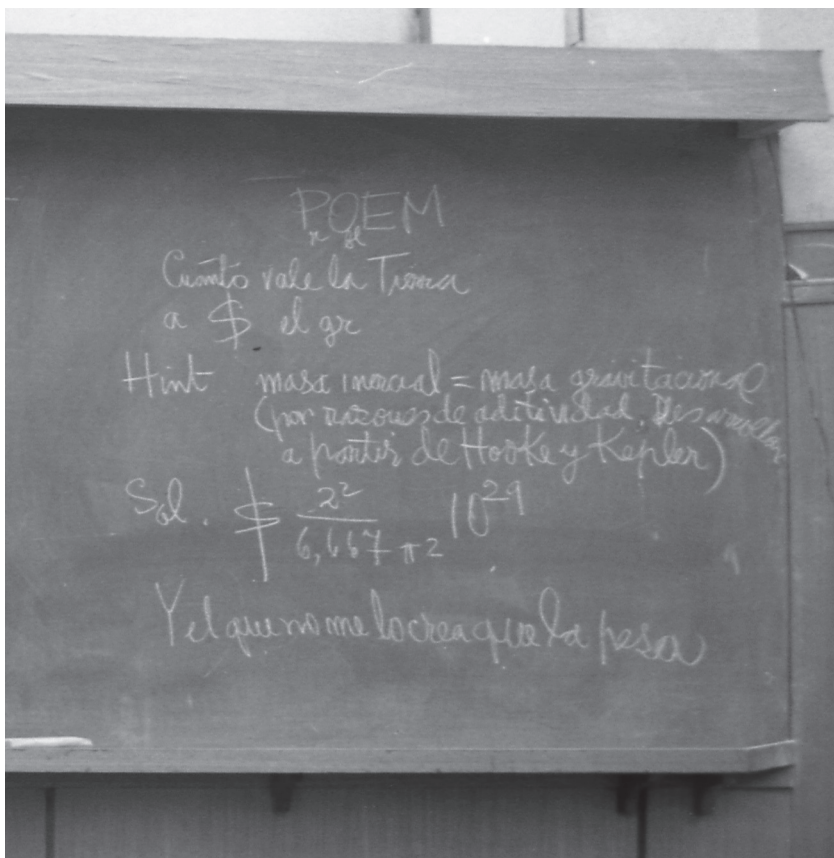 POEM
r bl
Cuánto vale la Tierra
a $ el gr
Hint masa inercial = masa gravitacional
(por razones de aditividad Desarrollar
a partir de Hooke y Kepler)
Sol. $ 2² / 6,667 π² 10²⁹
Y el que no me lo crea que la pesa